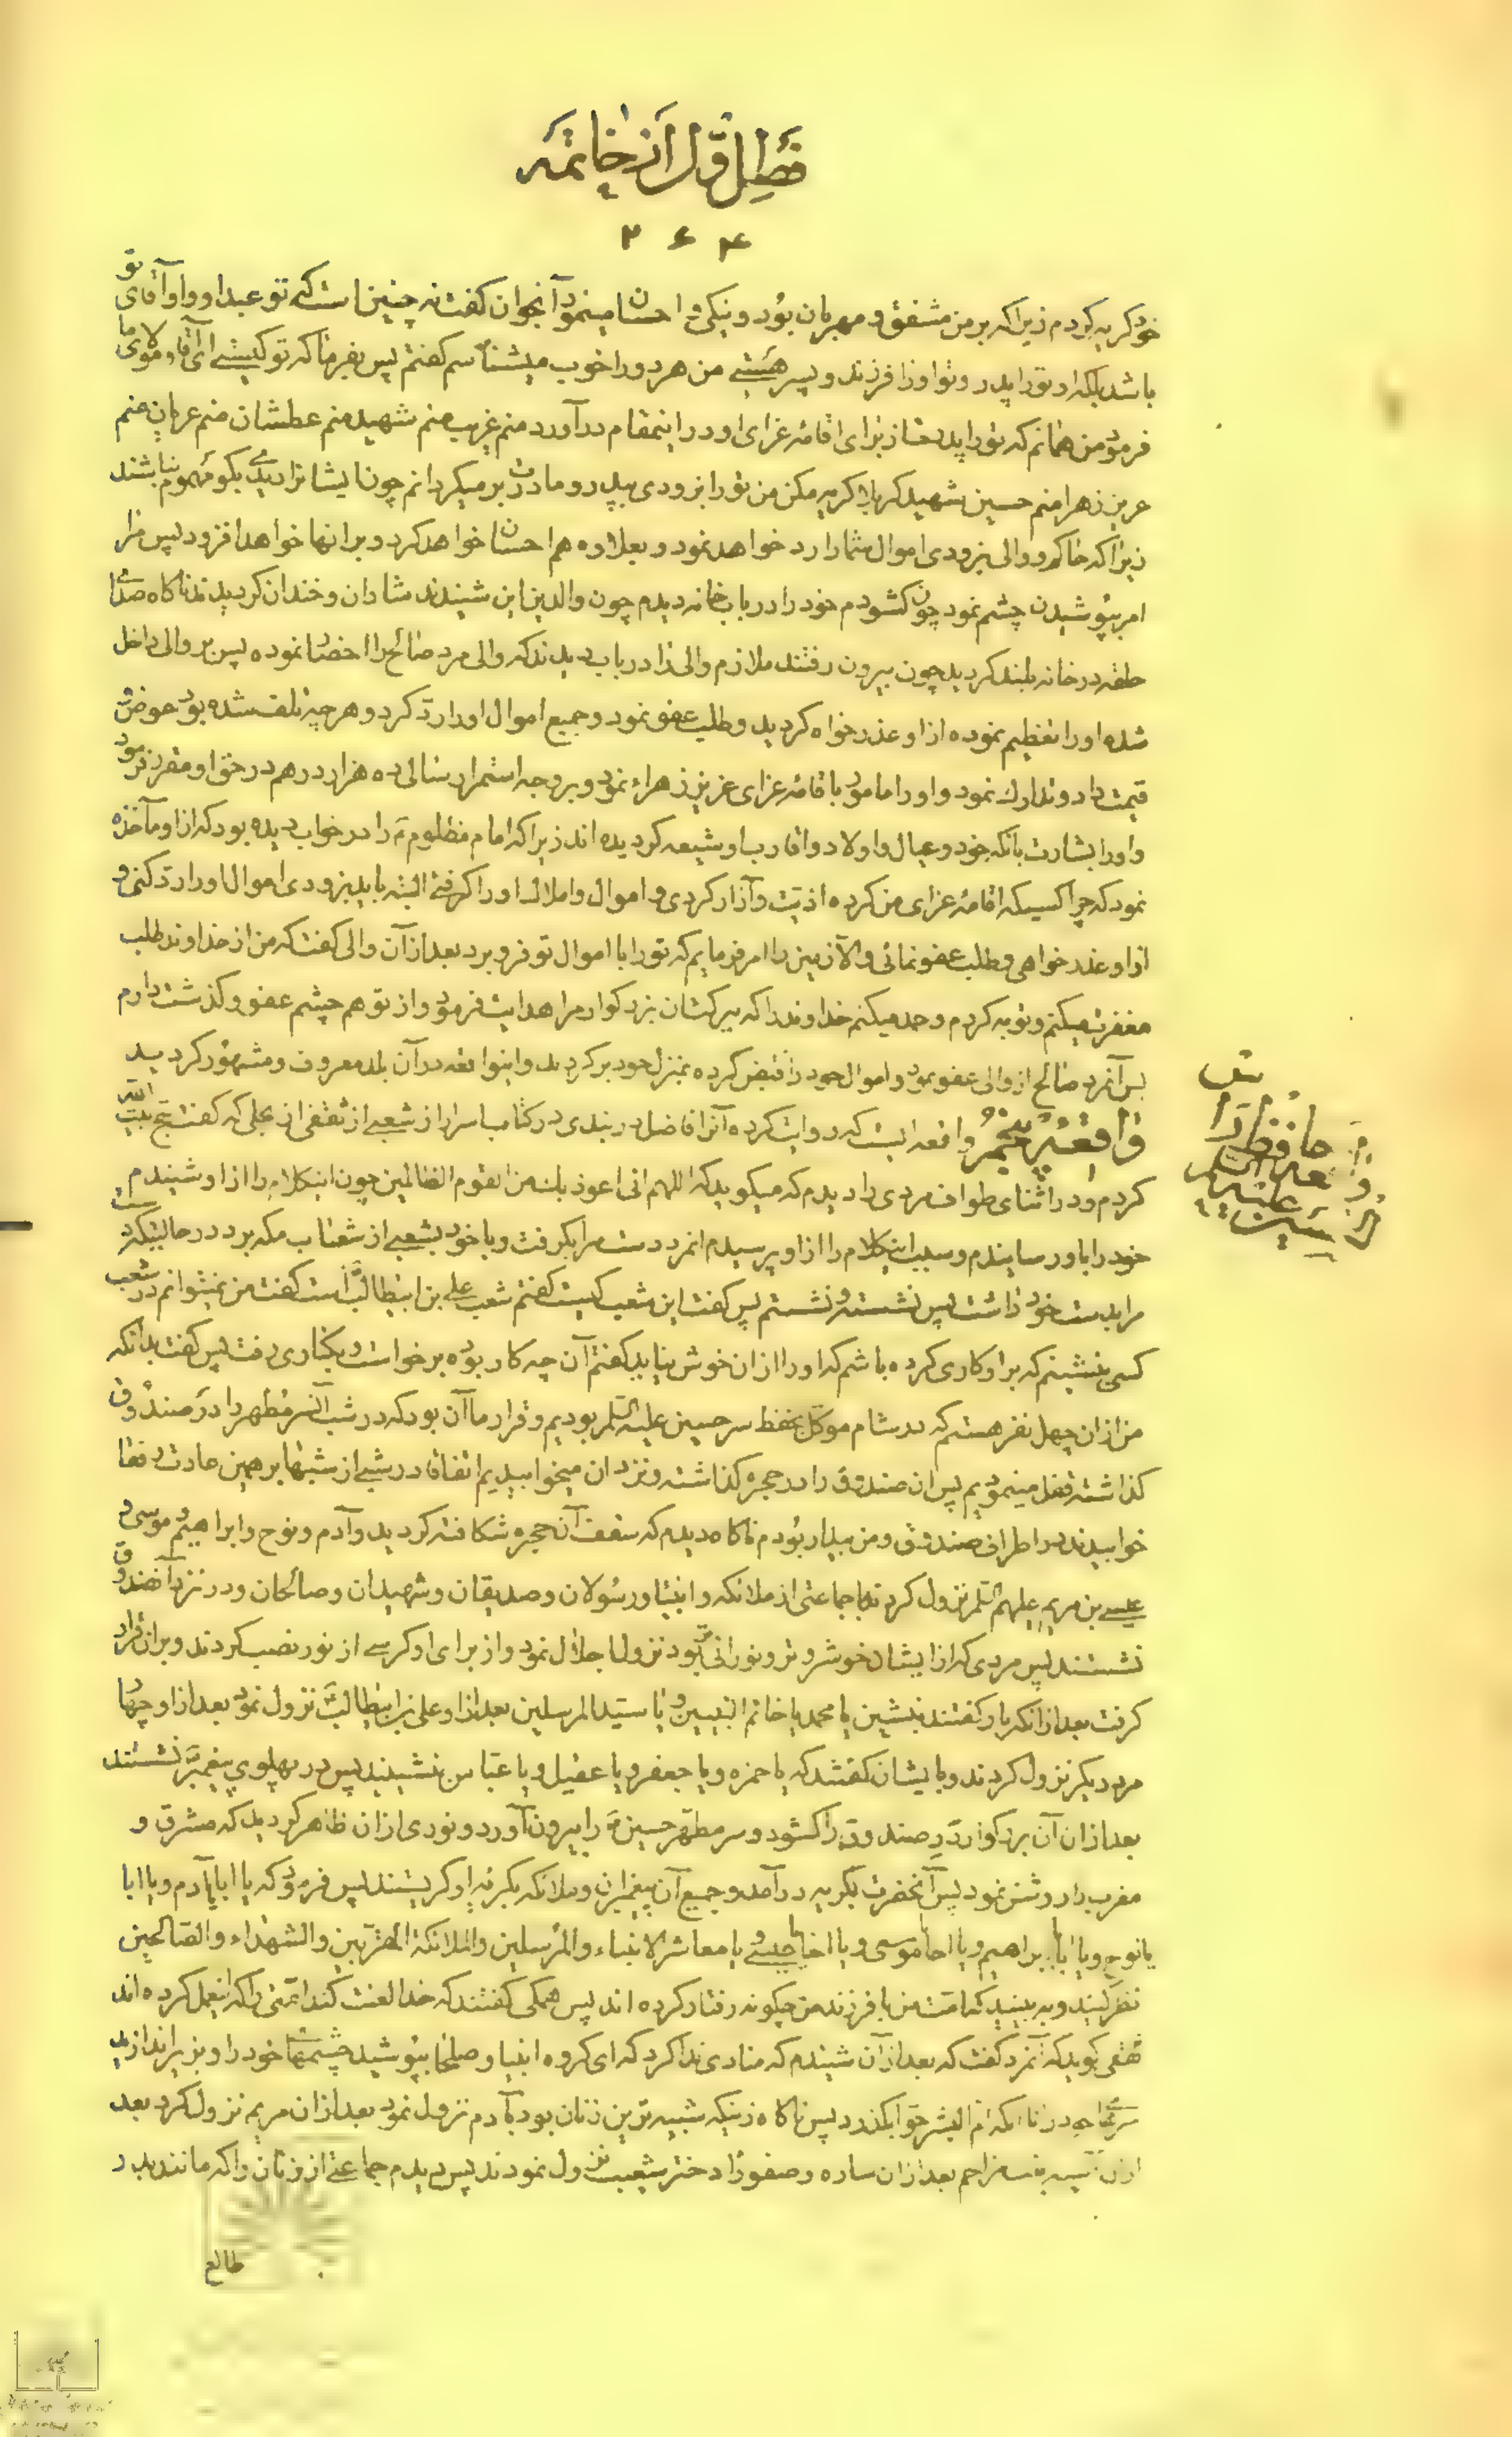 فصل اول از خاتمه
۲۶۴
خود گریه کردم زیرا که بر من مشفق و مهربان بود و نیکی و احسان مینمود آنجوان کفت نه چنین است که تو عبد او و او آقای تو
باشد بلکه او تو را پدر و تو او را فرزند و پسر هستی من هر دو را خوب میشناسم کفتم پس بفرما که تو کیستی ای آقا و مولای ما
فرمود من همانم که تو را پدرت از برای اقامهٔ عزای او در اینمقام درآورد منم غریب منم شهید منم عطشان منم عریان منم
عزیز زهرا منم حسین شهید کربلا کریه مکن من تو را بزودی بپدر و مادرت برمیکردانم چون ایشانرا دیدی بکو مهموم نباشند
زیرا که حاکم و والی بزودی اموال شما را رد خواهد نمود و بعلاوه هم احسان خواهد کرد و بر انها خواهد افزود پس مرا
امر بپوشیدن چشم نمود چون کشودم خود را در باب خانه دیدم چون والدین این شنیدند شادان و خندان کردیدند ناکاه صدای
حلقه در خانه بلند کردید چون بیرون رفتند ملازم والی را در باب دیدند که والی مرد صالح را احضار نموده پس بر والی داخل
شده او را تعظیم نموده از او عذر خواه کردید و طلب عفو نمود و جمیع اموال او را رد کرد و هر چیز تلف شده بود عوض
قیمت داد و تدارک نمود و او را مامور باقامهٔ عزای عزیز زهراء نمود و بر وجه استمرار سالی ده هزار درهم در حق او مقرر فرمود
و او را بشارت بانکه خود و عیال و اولاد و اقارب او شیعه کردیده اند زیرا که امام مظلوم را در خواب دیده بود که از او مآخذه
نمود که چرا کسیکه اقامهٔ عزای من کرده اذیت و آزار کردی و اموال و املاک او را کرفتی البته باید بزودی اموال او را رد کنی و
از او عذر خواهی و طلب عفو نمائی و الا زمین را امر فرمایم که تو را با اموال تو فرو برد بعد از آن والی کفت که من از خداوند طلب
مغفرت میکنم و توبه کردم و حمد میکنم خداوند را که ببرکت ان بزرکوار مرا هدایت فرمود و از تو هم چشم عفو و کذشت دارم
پس آنمرد صالح از والی عفو نمود و اموال خود را قبض کرده بمنزل خود بر کردید و اینواقعه در آن بلد معروف و مشهور کردید
واقعهٔ پنجم واقعه ایست که روایت کرده آنرا فاضل دربندی در کتاب اسرار از شعبی از ثقفی از بجلی که کفت حج بیت الله
کردم و در اثنای طواف مردی را دیدم که میکوید که اللهم انی اعوذ بک من القوم الظالمین چون اینکلام را از او شنیدم
خود را باو رسانیدم و سبب اینکلام را از او پرسیدم انمرد دست مرا بکرفت و با خود بشعبی از شعاب مکه برد در حالتیکه دست
مرا بدست خود داشت پس نشست و نشستم پس کفت این شعب کیست کفتم شعب علی بن ابیطالب است کفت من نمیتوانم در شعب
کسی بنشینم که بر او کاری کرده باشم که او را از ان خوش نیاید کفتم آن چه کار بوده برخواست و بکناری رفت پس کفت بدانکه
من از ان چهل نفر هستم که در شام موکل بحفظ سر حسین علیه السلم بودیم و قرار ما آن بود که در شب آنسر مطهر را در صندوق
کذاشته قفل مینمودیم پس ان صندوق را در حجره کذاشته و نزد ان میخوابیدیم اتفاقا در شبی از شبها بر همین عادت رفقا
خوابیدند در اطراف صندوق و من بیدار بودم ناکاه دیدم که سقف آن حجره شکافته کردید و آدم و نوح و ابراهیم و موسی و
عیسی بن مریم علیهم السلم نزول کردند با جماعتی از ملائکه و انبیا و رسولان و صدیقان و شهیدان و صالحان و در نزد آنصندوق
نشستند پس مردی که از ایشان خوشروتر و نورانی تر بود نزول اجلال نمود و از برای او کرسی از نور نصب کردند و بر ان قرار
کرفت بعد از انکه باو کفتند بنشین یا محمد یا خاتم النبیین و یا سید المرسلین بعد از او علی بن ابیطالب نزول نمود بعد از او چهار
مرد دیکر نزول کردند و بایشان کفتند که یا حمزه و یا جعفر و یا عقیل و یا عباس بنشینید پس در پهلوی پیغمبر نشستند
بعد از ان آن بزرکوار در صندوق را کشود و سر مطهر حسین را بیرون آورد و نوری از ان ظاهر کردید که مشرق و
مغرب را روشن نمود پس آنحضرت بکریه درآمد و جمیع آن پیغمبران و ملائکه بکریه او کریستند پس فرمود که یا ابا یا آدم و یا ابا
یا نوح و یا ابا ابراهیم و یا اخا موسی و یا اخا عیسی و یا معاشر الانبیاء و المرسلین و الملائکة المقربین و الشهداء و الصالحین
نظر کنید و به بینید که امت من با فرزند من چکونه رفتار کرده اند پس همکی کفتند که خدا لعنت کند امتی را که اینعمل کرده اند
ثقفی کوید که آنمرد کفت که بعد از آن شنیدم که منادی ندا کرد که ای کروه انبیا و صلحا بپوشید چشمها خود را و بزیر اندازید
سرها را ام البشر حوا بکذرد پس ناکاه زنیکه شبیه ترین زنان بود بآدم نزول نمود بعد از ان مریم نزول کرد بعد
از ان آسیه بنت مزاحم بعد از ان ساره و صفورا دختر شعیب نزول نمودند پس دیدم جماعتی از زنان را که مانند بدر
طالع
حافظ
علیه